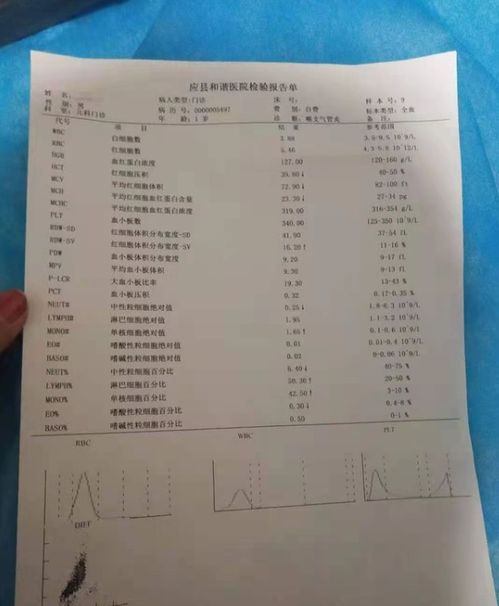 应县和谐医院检验报告单
姓名: 病人类型:门诊 床号: 样本号: 9
性别: 男 病历号: 0000005497 费别: 自费 标本类型: 全血
科室: 儿科门诊 年龄: 1 岁 诊断: 喉支气管炎 备注:
代号 项目 结果 参考范围
WBC 白细胞数 3.88
RBC 红细胞数 5.46
HGB 血红蛋白浓度 127.00 120-160 g/L
HCT 红细胞压积 39.80↓ 40-50 %
MCV 平均红细胞体积 72.90↓ 82-100 fl
MCH 平均红细胞血红蛋白含量 23.30↓ 27-34 pg
MCHC 平均红细胞血红蛋白浓度 319.00 316-354 g/L
PLT 血小板数 340.00 125-350 10^9/L
RDW-SD 红细胞体积分布宽度-SD 41.90 37-54 fl
RDW-SV 红细胞体积分布宽度-SV 16.20↑ 11-16 %
PDW 血小板体积分布宽度 9.20 9-17 fl
MPV 平均血小板体积 9.30 9-13 fl
P-LCR 大血小板比率 19.30 13-43 %
PCT 血小板压积 0.32 0.17-0.35 %
NEUT# 中性粒细胞绝对值 0.25↓ 1.8-6.3 10^9/L
LYMPH# 淋巴细胞绝对值 1.95 1.1-3.2 10^9/L
MONO# 单核细胞绝对值 1.65↑ 0.1-0.6 10^9/L
EO# 嗜酸性粒细胞绝对值 0.01 0.01-0.4 10^9/L
BASO# 嗜碱性粒细胞绝对值 0.02 0-0.06 10^9/L
NEUT% 中性粒细胞百分比 6.40↓ 40-75 %
LYMPH% 淋巴细胞百分比 50.30↑ 20-50 %
MONO% 单核细胞百分比 42.50↑ 3-10 %
EO% 嗜酸性粒细胞百分比 0.30↓ 0.4-8 %
BASO% 嗜碱性粒细胞百分比 0.50 0-1 %
RBC WBC PLT
DIFF